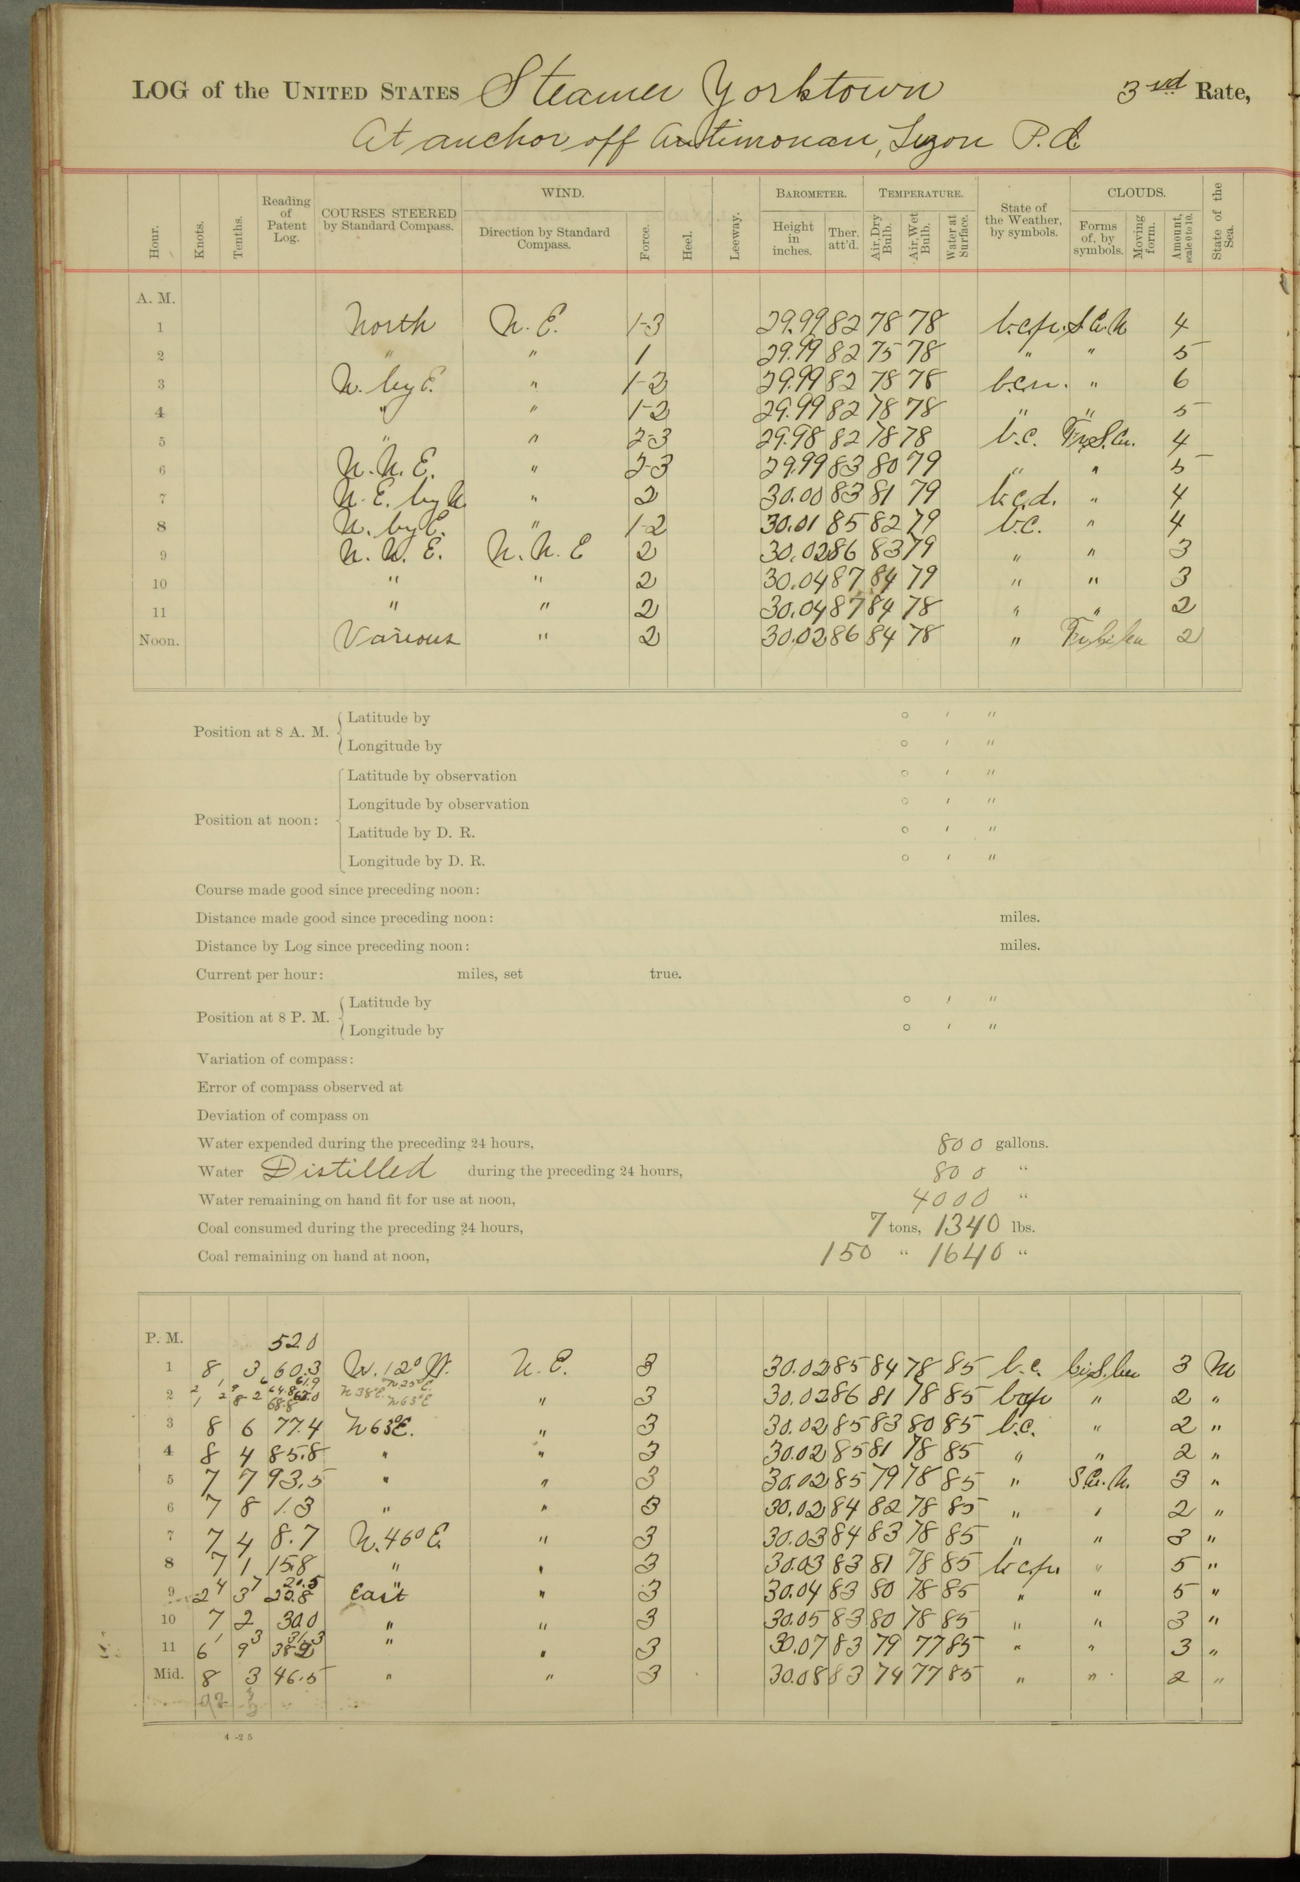 LOG of the UNITED STATES Steamer Yorktown 3rd Rate,
At anchor off Antimonan, Luzon P.I.
Hour. Knots. Tenths. Reading of Patent Log. COURSES STEERED by Standard Compass. WIND. Direction by Standard Compass. Force. Heel. Leeway. BAROMETER. Height in inches. Ther. att'd. TEMPERATURE. Air, Dry Bulb. Air, Wet Bulb. Water at Surface. State of the Weather, by symbols. CLOUDS. Forms of, by symbols. Moving form. Amount, scale 0 to 10. State of the Sea.
A. M.
1 North N. E. 1-3 29.99 82 78 78 b.c.p. S. Cu. N 4
2 " " 1 29.99 82 75 78 " " 5
3 N. by E. " 1-2 29.99 82 78 78 " 6
4 " " 1-2 29.99 82 78 78 " " 5
5 " " 2-3 29.98 82 78 78 b.c. 4
6 N. N. E. " 2-3 29.99 83 80 79 " " 5
7 N. E. by N. " 2 30.00 83 81 79 b.c.d. " 4
8 N. by E. " 1-2 30.01 85 82 79 b.c. " 4
9 N. N. E. N. N. E 2 30.02 86 83 79 " " 3
10 " " 2 30.04 87 84 79 " " 3
11 " " 2 30.04 87 84 78 " " 2
Noon. Various " 2 30.02 86 84 78 " 2
Position at 8 A. M. Latitude by ° ′ ″
Longitude by ° ′ ″
Position at noon: Latitude by observation ° ′ ″
Longitude by observation ° ′ ″
Latitude by D. R. ° ′ ″
Longitude by D. R. ° ′ ″
Course made good since preceding noon:
Distance made good since preceding noon: miles.
Distance by Log since preceding noon: miles.
Current per hour: miles, set true.
Position at 8 P. M. Latitude by ° ′ ″
Longitude by ° ′ ″
Variation of compass:
Error of compass observed at
Deviation of compass on
Water expended during the preceding 24 hours, 800 gallons.
Water Distilled during the preceding 24 hours, 800 "
Water remaining on hand fit for use at noon, 4000 "
Coal consumed during the preceding 24 hours, 7 tons, 1340 lbs.
Coal remaining on hand at noon, 150 " 1640 "
P. M. 52.0
1 8 3 60.3 N. 12° W. N. E. 3 30.02 85 84 78 85 b.c. Ci. S. Cu 3 M
2 N 38° E. N 25° E. N 63° E " 3 30.02 86 81 78 85 bcp " 2 "
3 8 6 77.4 N 63° E. " 3 30.02 85 83 80 85 b.c. " 2 "
4 8 4 85.8 " " 3 30.02 85 81 78 85 " " 2 "
5 7 7 93.5 " " 3 30.02 85 79 78 85 " S. Cu. N. 3 "
6 7 8 1.3 " " 3 30.02 84 82 78 85 " " 2 "
7 7 4 8.7 N. 46° E. " 3 30.03 84 83 78 85 " " 3 "
8 7 1 15.8 " " 3 30.03 83 81 78 85 b.c.p. " 5 "
9 2 4 3 7 20.5 22.8 East " 3 30.04 83 80 78 85 " " 5 "
10 7 2 30.0 " " 3 30.05 83 80 78 85 " " 3 "
11 1 6 3 9 31.3 38.2 " " 3 30.07 83 79 77 85 " " 3 "
Mid. 8 3 46.5 " " 3 30.08 83 79 77 85 " " 2 "
4-25